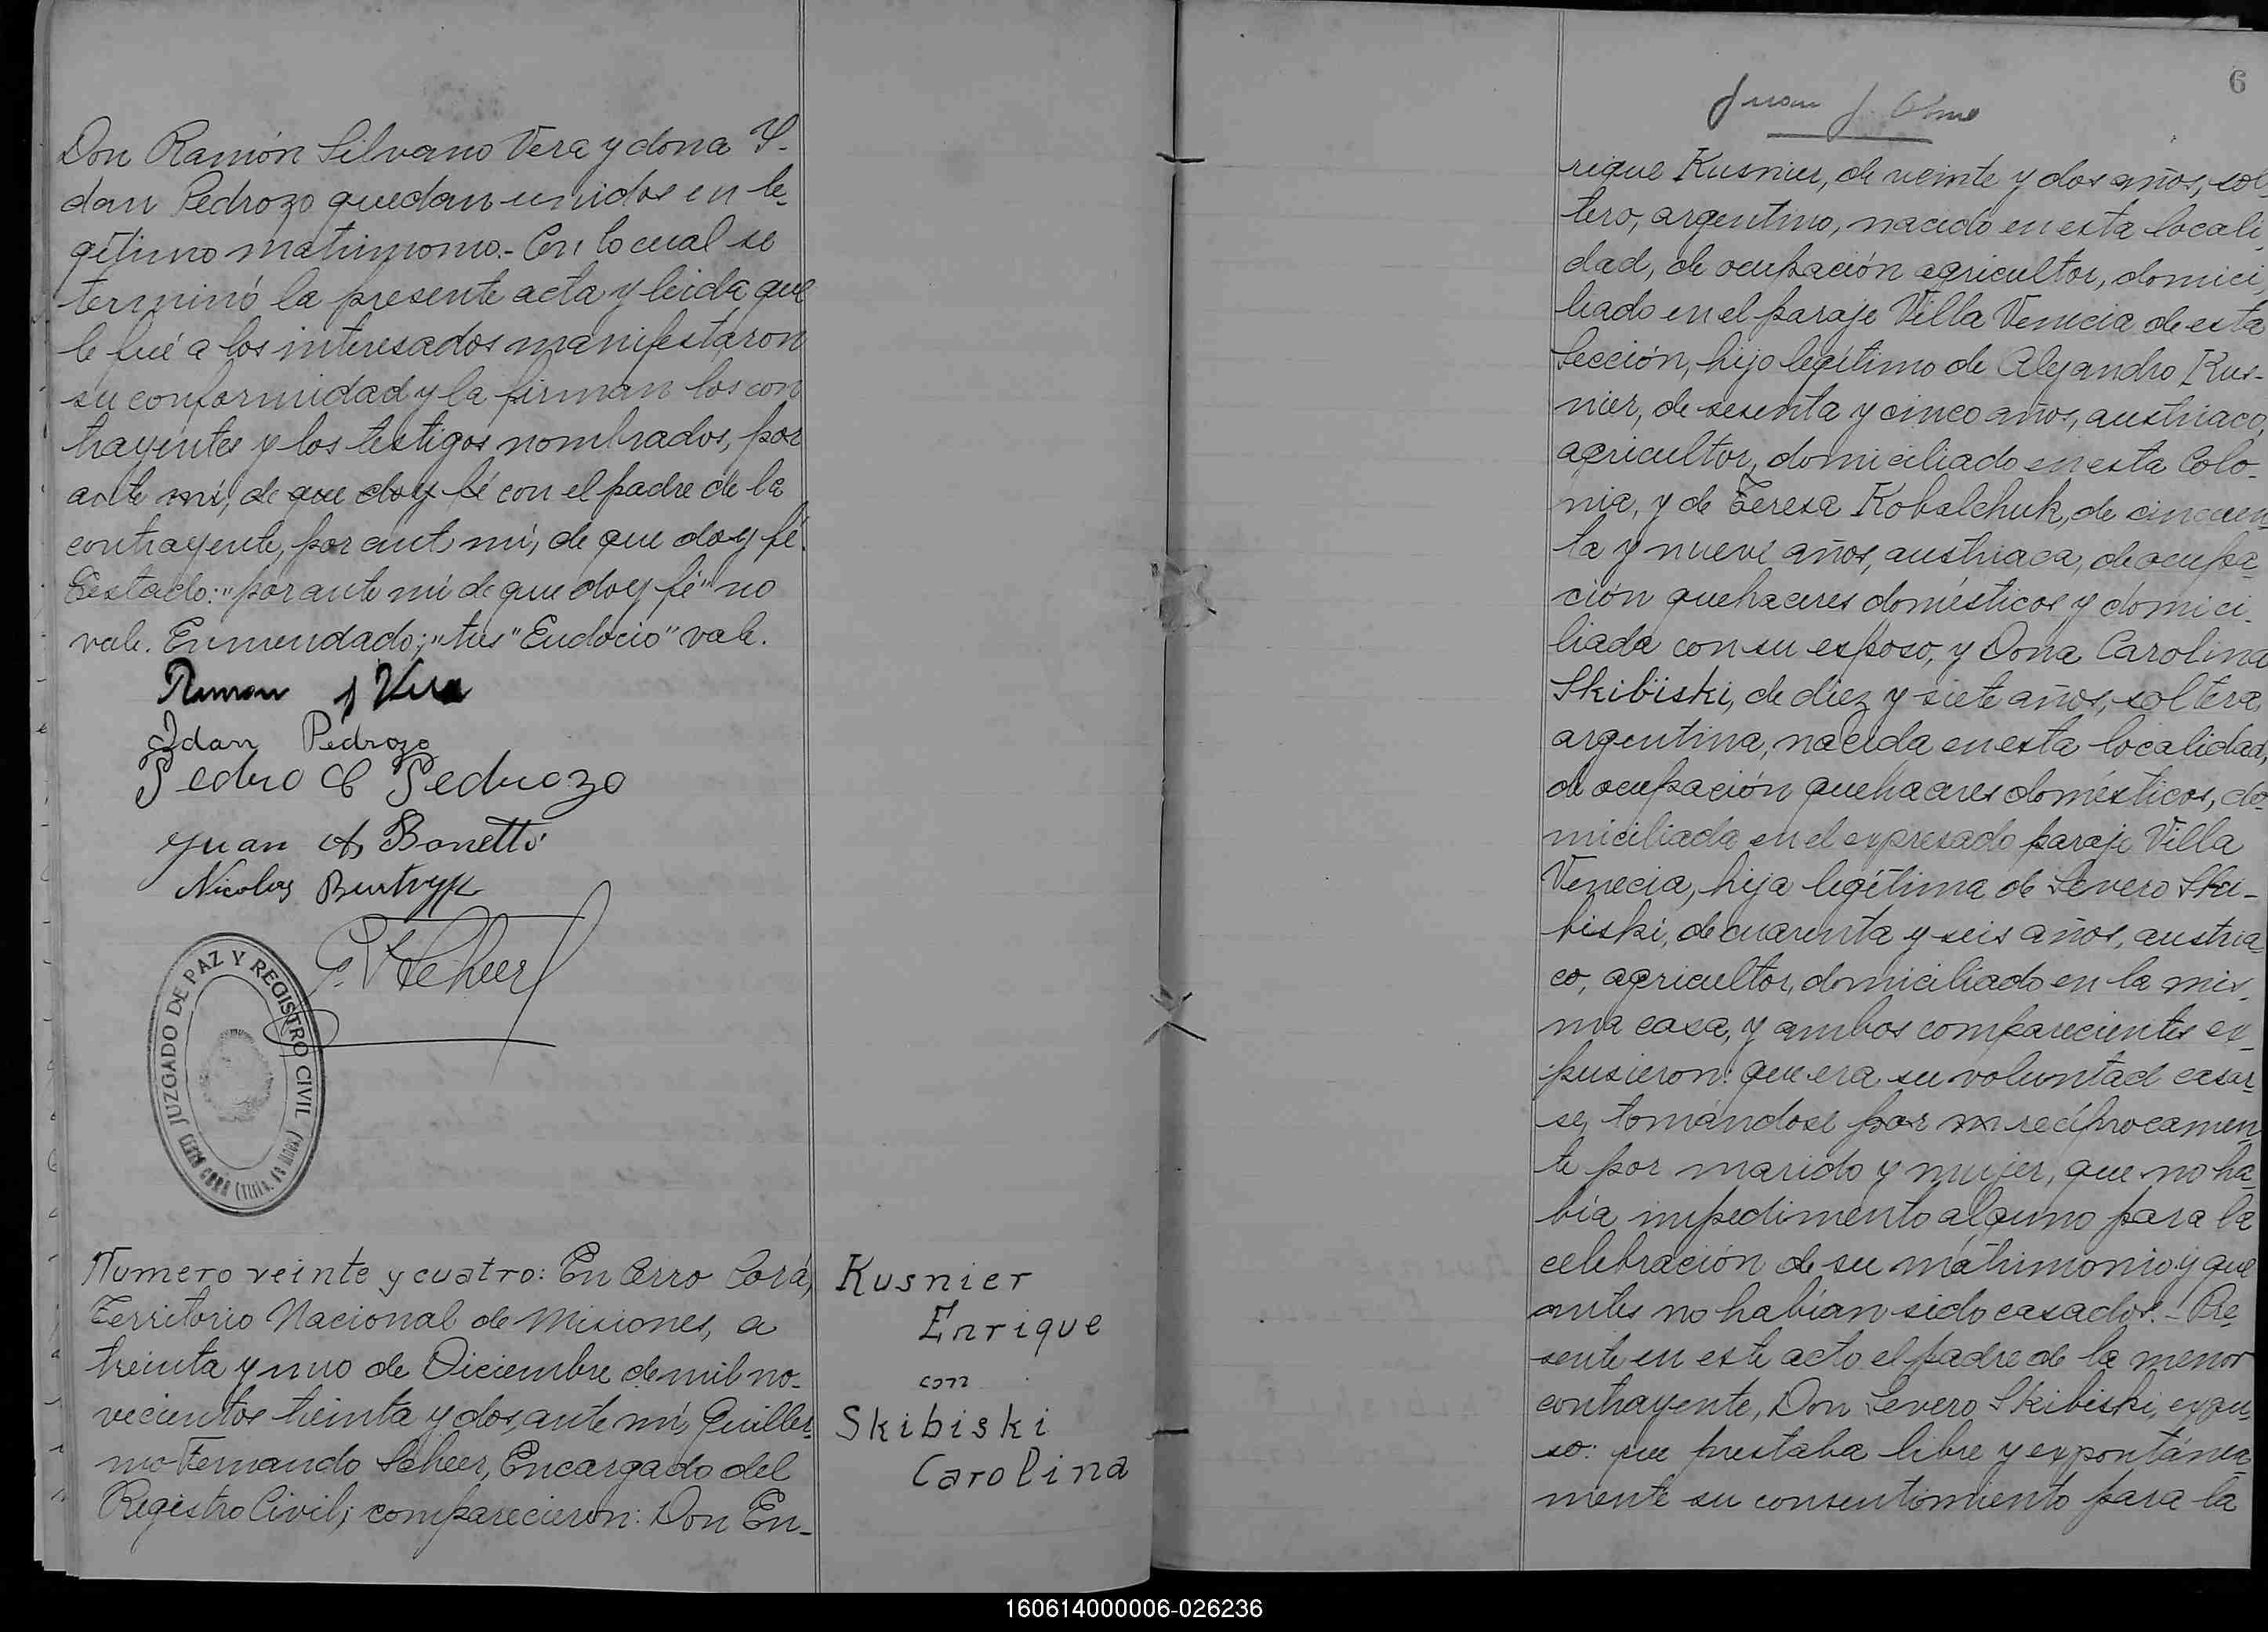 Don Ramón Silvano Vera y dona Y-
dan Pedrozo quedan unidos en le-
gítimo matrimonio.- Con lo cual se
terminó la presente acta y leida que
le fué a los interesados manifestaron
su conformidad y la firman los con
trayentes y los testigos nombrados, por
ante mí, de que doy fé con el padre de la
contrayente, por ant mí, de que doy fé.
Testado: "por ante mí de que doy fé" no
vale. Enmendado; "tes" "Eudocio" vale.
Ramon S Vera
Idan Pedrozo
Pedro E Pedrozo
Juan A Bonetti
Nicolas
G. F. Scheer
JUZGADO DE PAZ Y REGISTRO CIVIL
CERRO CORÁ
Numero veinte y cuatro: En Cerro Corá,
Territorio Nacional de Misiones, a
treinta y uno de Diciembre de mil no-
vecientos treinta y dos, ante mí, Guiller-
mo Fernando Scheer, Encargado del
Registro Civil; comparecieron: Don En-
Kusnier
Enrique
con
Skibiski
Carolina
6
Juan J.
rique Kusnier, de veinte y dos años, sol-
tero, argentino, nacido en esta locali
dad, de ocupación agricultor, domici
liado en el paraje Villa Venecia de esta
Sección, hijo legítimo de Alejandro Kus-
nier, de sesenta y cinco años, austriaco,
agricultor, domiciliado en esta Colo-
nia, y de Teresa Kobalchuk, de cincuen-
ta y nueve años, austriaca, de ocupa-
ción quehaceres domésticos y domici-
liada con su esposo, y Dona Carolina
Skibiski, de diez y siete años, soltera
argentina, nacida en esta localidad,
de ocupación quehaceres domésticos, do-
miciliada en el expresado paraje Villa
Venecia, hija legítima de Severo Ski-
biski, de cuarenta y seis años, austria-
co, agricultor, domiciliado en la mis-
ma casa, y ambos comparecientes ex-
pusieron: que era su voluntad casar-
se, tomándose por m recíprocamen
te por marido y mujer, que no ha-
bía impedimento alguno para la
celebración de su matrimonio y que
antes no habían sido casados.- Pre-
sente en este acto el padre de la menor
contrayente, Don Severo Skibiski, expu-
so: que prestaba libre y expontánea
mente su consentimiento para la
160614000006-026236